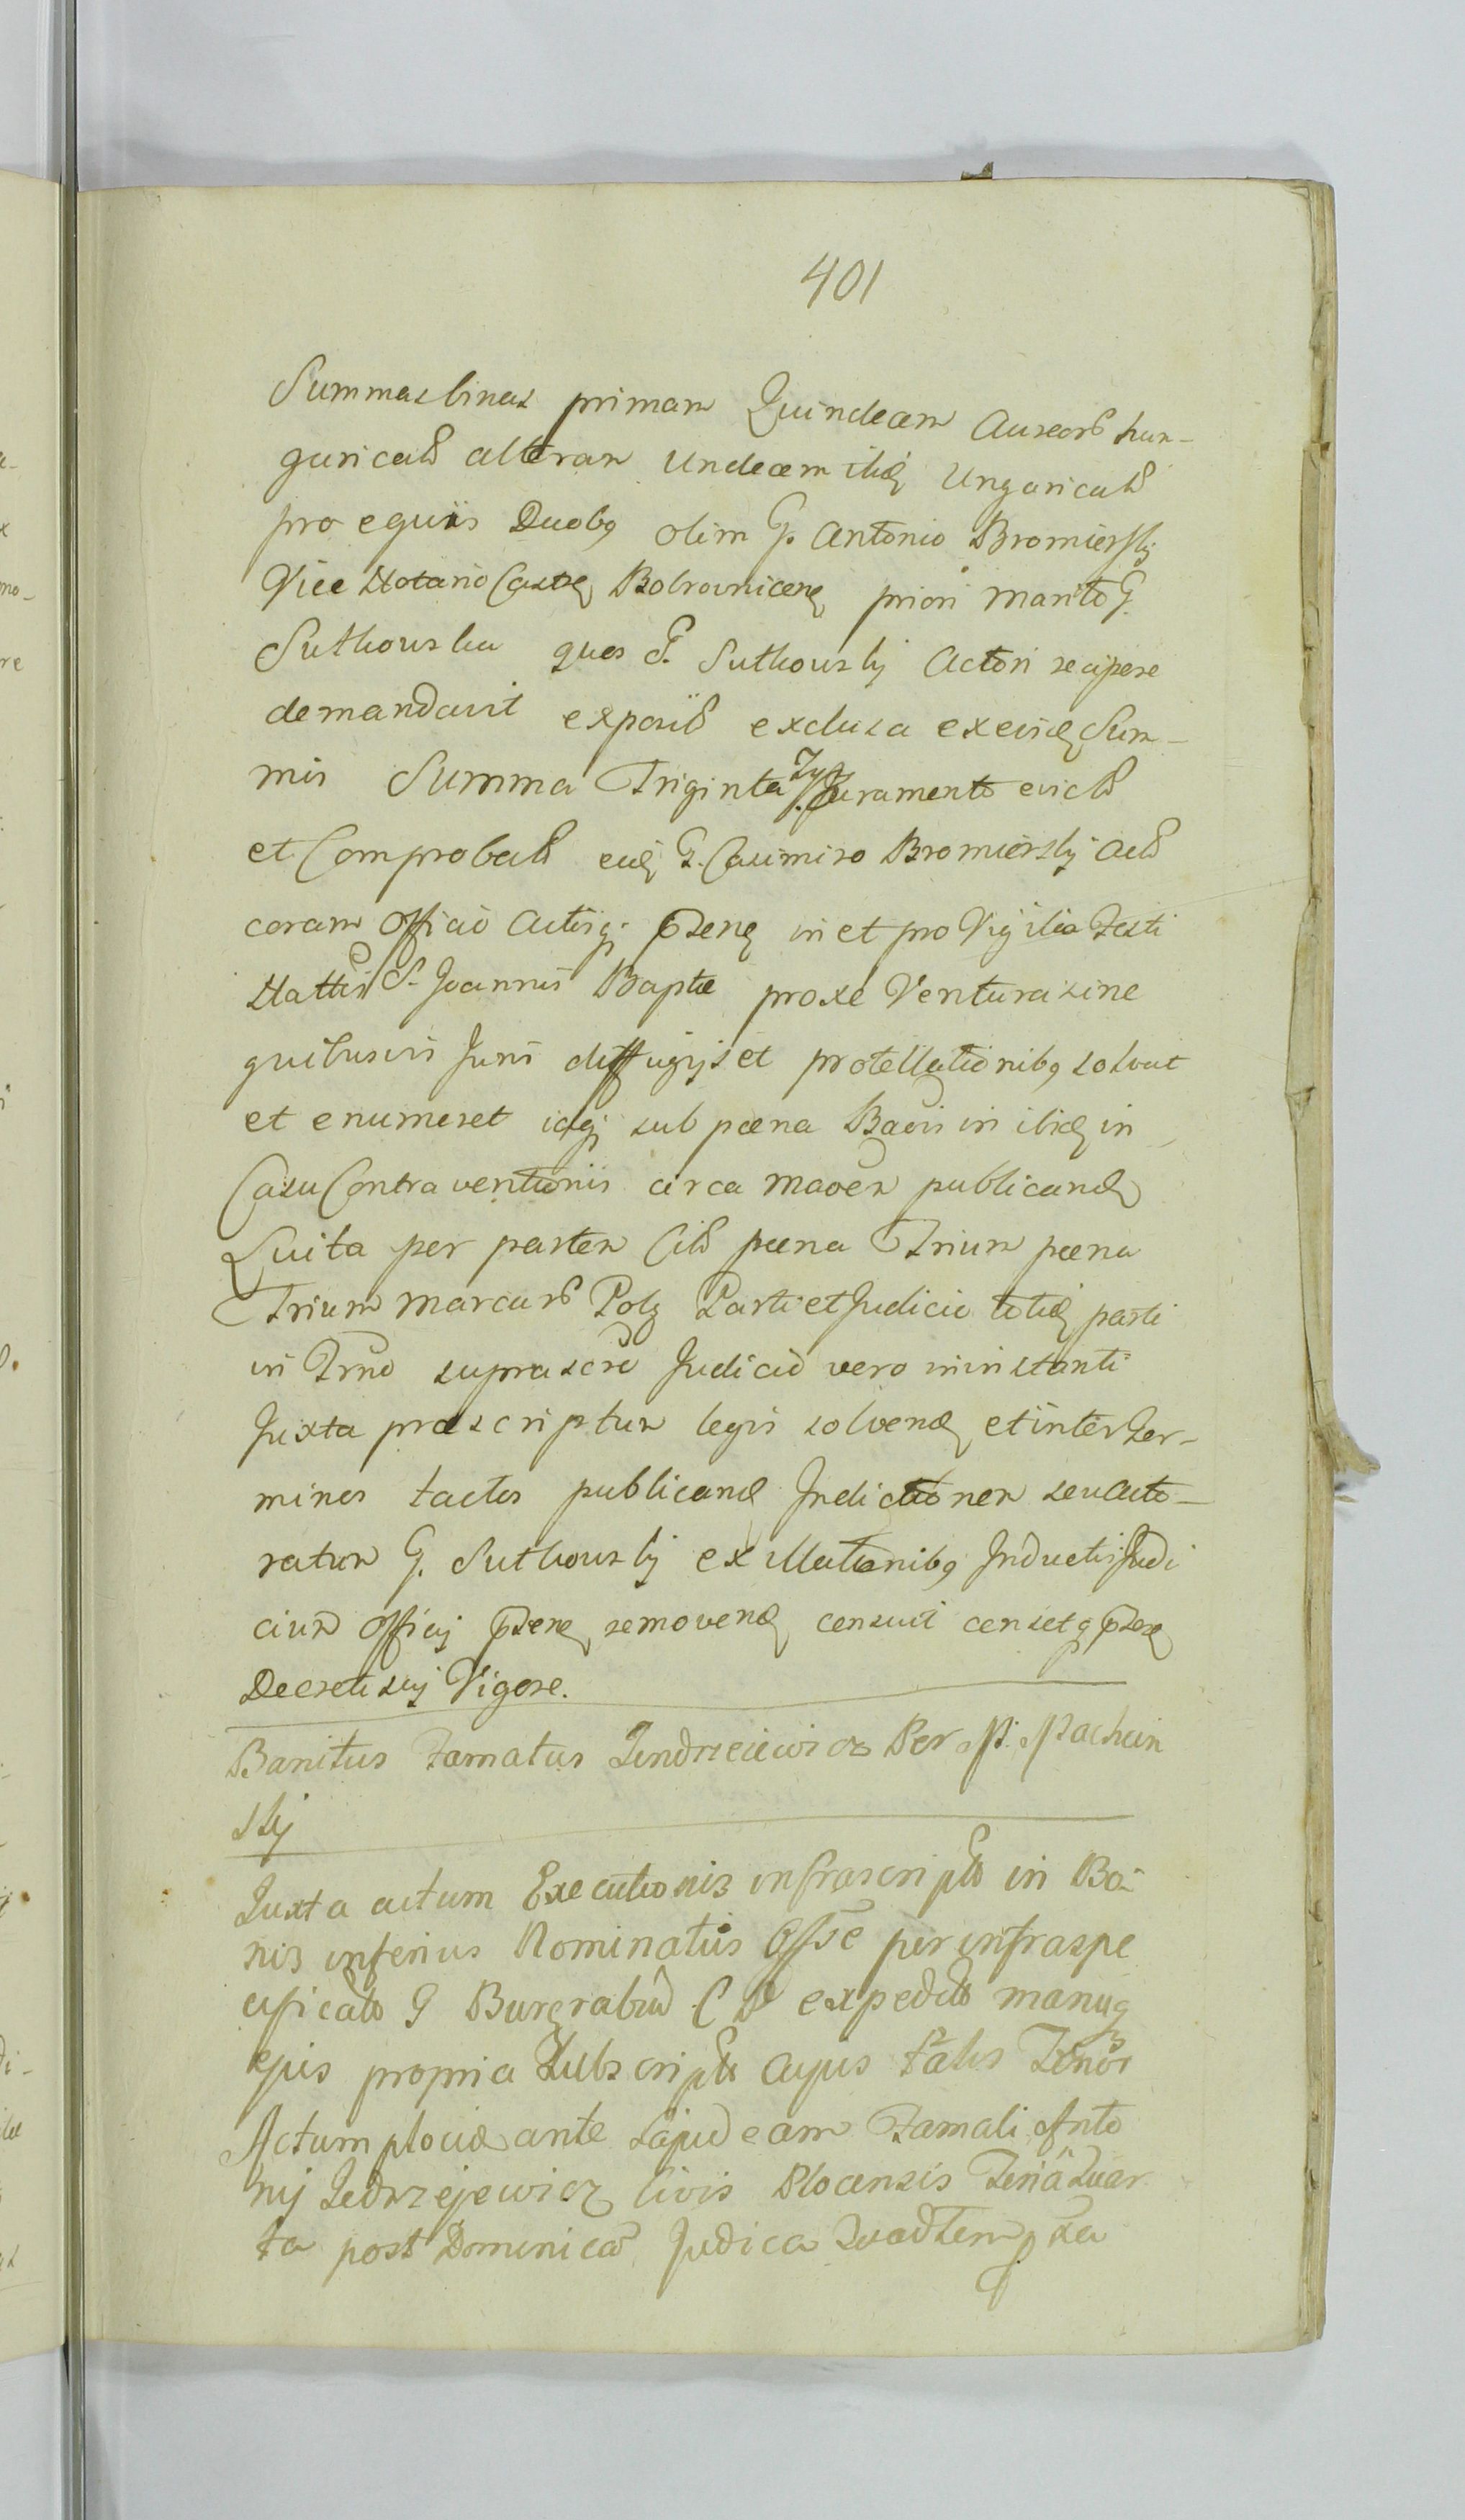 401
Summas binas primam Quindecem Aureors hun-
garicals alteram Undecem itid Ungaricals
pro equiis Duobq olim G. Antonio Bromierskj
Vice Notario Castre Bobrowniceng priori marito G.
Suthowska quos G. Suthowskj Actori recipere
demandavit exposits exclusa ex eisd Sum-
mis Summa Triginta Tyt Juramento evicts
et Comprobats eid G. Casimiro Bromierskj Acts
coram Officio Actisq; psens in et pro Vigilia Festi
Nattis S. Joannis Baptæ proxe Ventura sine
quibusvis Juris diffugijs et protellationibq solvat
et enumeret idq; sub pæna Banis in ibid in
Casu Contraventionis circa maoem publicand
Luita per partem Cits pæna Trium pæna
Trium marcars Polq Parti et Judicio totid parti
in Trno suprascro Judicio vero in instanti
Juxta præscriptum legis solvend et inter Ter-
minos tactos publicand Indictionem seu Acto-
ratum G. Suthowskj ex illationibq Inductis Judi
cium Officij psens removend censuit censetq psens
Decreti suj Vigore.
Banitus Famatus Jendrzeiewicz Per M. Pachcin
skj
Juxta actum Executionis infrascripts in Bo-
nis inferius Nominatiis Offse per infraspe
cificats G Burgrabiu C P expedits manuq
ejus propria Subscripts Cujus talis Tenor
Actum plociæ ante Lapideam Famati Anto
nij Jedrzejewicz Civis Plocensis Feria Quar
ta post Dominica Judica Quadtem psa